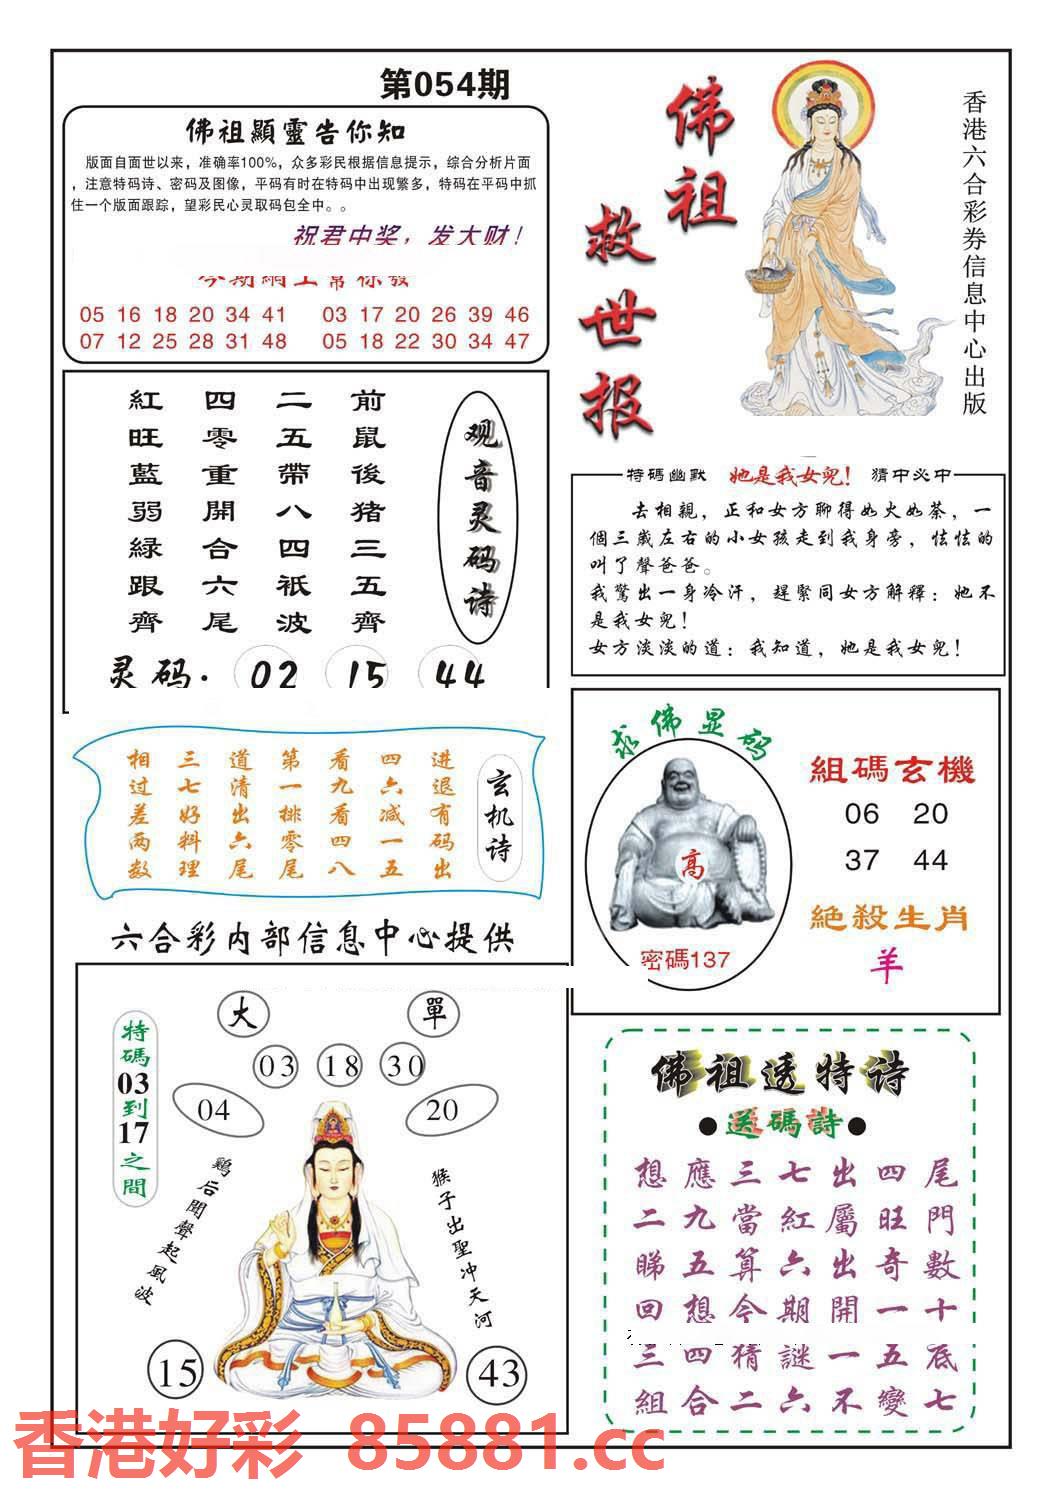 第054期
佛祖顯靈告你知
版面自面世以来，准确率100%，众多彩民根据信息提示，综合分析片面
，注意特码诗、密码及图像，平码有时在特码中出现繁多，特码在平码中抓
住一个版面跟踪，望彩民心灵取码包全中。。
祝君中奖，发大财！
05 16 18 20 34 41
03 17 20 26 39 46
07 12 25 28 31 48
05 18 22 30 34 47
佛祖
救世报
香港六合彩券信息中心出版
观音灵码诗
前鼠後猪三五齊
二五帶八四衹波
四零重開合六尾
紅旺藍弱緑跟齊
灵码: 02 15 44
特碼幽默 她是我女兒！ 猜中必中
去相親，正和女方聊得如火如荼，一
個三歲左右的小女孩走到我身旁，怯怯的
叫了聲爸爸。
我驚出一身冷汗，趕緊同女方解釋：她不
是我女兒！
女方淡淡的道：我知道，她是我女兒！
玄机诗
进退有码出
四六减一五
看九看四八
第一排零尾
道清出六尾
三七好料理
相过差两数
求佛显码
高
密碼137
組碼玄機
06 20
37 44
絕殺生肖
羊
六合彩内部信息中心提供
大
單
03 18 30
04
20
特碼03到17之間
鷄后聞聲起風波
猴子出聖冲天河
15
43
佛祖透特诗
●送碼詩●
想應三七出四尾
二九當紅屬旺門
睇五算六出奇數
回想今期開一十
三四猜謎一五底
組合二六不變七
香港好彩 85881.cc